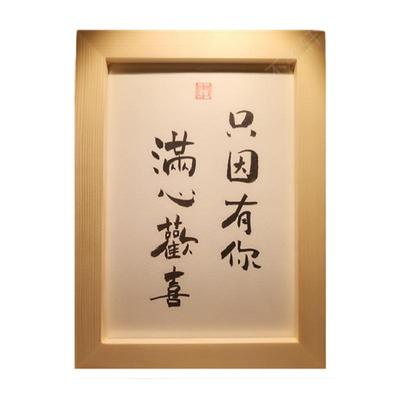 只因有你
滿心歡喜